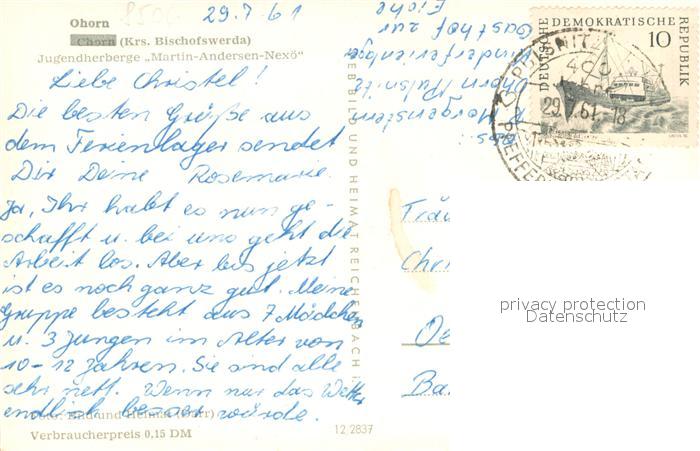 29.7.61
Ohorn
Chorn (Krs. Bischofswerda)
Jugendherberge „Martin-Andersen-Nexö"
Liebe Christel!
Die besten Grüße aus
dem Ferienlager sendet
Dir Deine Rosemarie.
Ja, Ihr habt es nun ge-
schafft u. bei uns geht die
Arbeit los. Aber bis jetzt
ist es noch ganz gut. Meine
Gruppe besteht aus 7 Mädchen
u. 3 Jungen im Alter von
10-12 Jahren. Sie sind alle
sehr nett. Wenn nur das Wetter
endlich besser würde.
Verbraucherpreis 0,15 DM
12/2837
BILD UND HEIMAT REICHENBACH i.
Abs.:
R. Morgenstern
Ohorn/Pulsnitz
Kinderferienlager
Gasthof zur
Fichte
DEUTSCHE DEMOKRATISCHE REPUBLIK
10
PULSNITZ
29.7.61-18
PFEFFER
Träu
Chri
Ba
privacy protection
Datenschutz